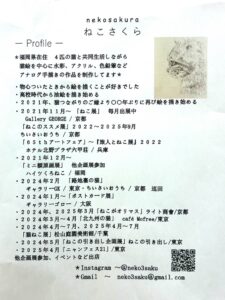 nekosakura
ねこさくら
— Profile —
★福岡県在住 4匹の猫と共同生活しながら
猫絵を中心に水彩、アクリル、色鉛筆など
アナログ手描きの作品を制作してます★
・物心ついたときから絵を描くことが好きでした
・高校時代から油絵を描き始める
・2021年、猫つながりのご縁より〇〇年ぶりに再び絵を描き始める
・2021年11月〜 「ねこ展」 毎月出展中
Gallery GEORGE / 京都
・「ねこのススメ展」2022〜2025年9月
ちいさいおうち / 京都
・「65たョアートフェア」〜「旅人とねこ展」2022
ホテル北野プラザ六甲荘 / 兵庫
・2021年12月〜
「ミニ額原画展」 他企画展参加
ハイツくろねこ / 福岡
・2024年2月 「路地裏の猫」
ギャラリー猫 / 東京・ちいさいおうち / 京都 巡回
・2024年1月〜「ポストカード展」
ギャラリーゴロー / 大阪
・2024年、2025年3月「ねこがオリマス」ライト商會/京都
・2024年3月〜4月「北九州の猫」 café Mofree/東京
・2024年4月〜7月、2025年4月〜7月
「猫ねこ展」松山庭園美術館/千葉
・2024年5月「ねこの引き出し企画展」ねこの引き出し/東京
・2025年4月「ニャンフェス21」/東京
他企画展参加、イベントなど出店
★Instagram 〜@neko3saku
★Gmail 〜 neko3saku@gmail.com